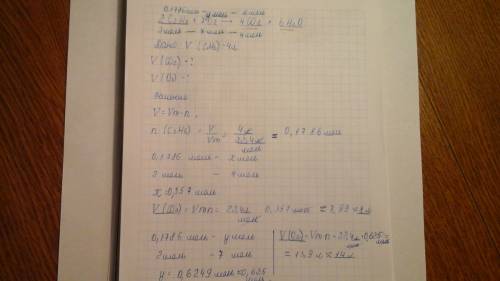 0,1786 моль – y моль – x моль
2C₂H₆ + 7O₂ → 4CO₂ + 6H₂O
2 моль — 7 моль — 4 моль
Дано: V (C₂H₆) = 4 л
V (CO₂) - ?
V (O₂) - ?
Решение
V = Vm·n,
n (C₂H₆) = V/Vm = 4 л / 22,4 л/моль = 0,1786 моль
0,1786 моль – x моль
2 моль – 4 моль
x = 0,357 моль
V (CO₂) = Vm·n = 22,4 л/моль · 0,357 моль = 7,99 ≈ 8 л
0,1786 моль – y моль
2 моль – 7 моль
y = 0,6249 моль ≈ 0,625 моль
V(O₂) = Vm·n = 22,4 л/моль · 0,625 моль =
= 13,9 л ≈ 14 л